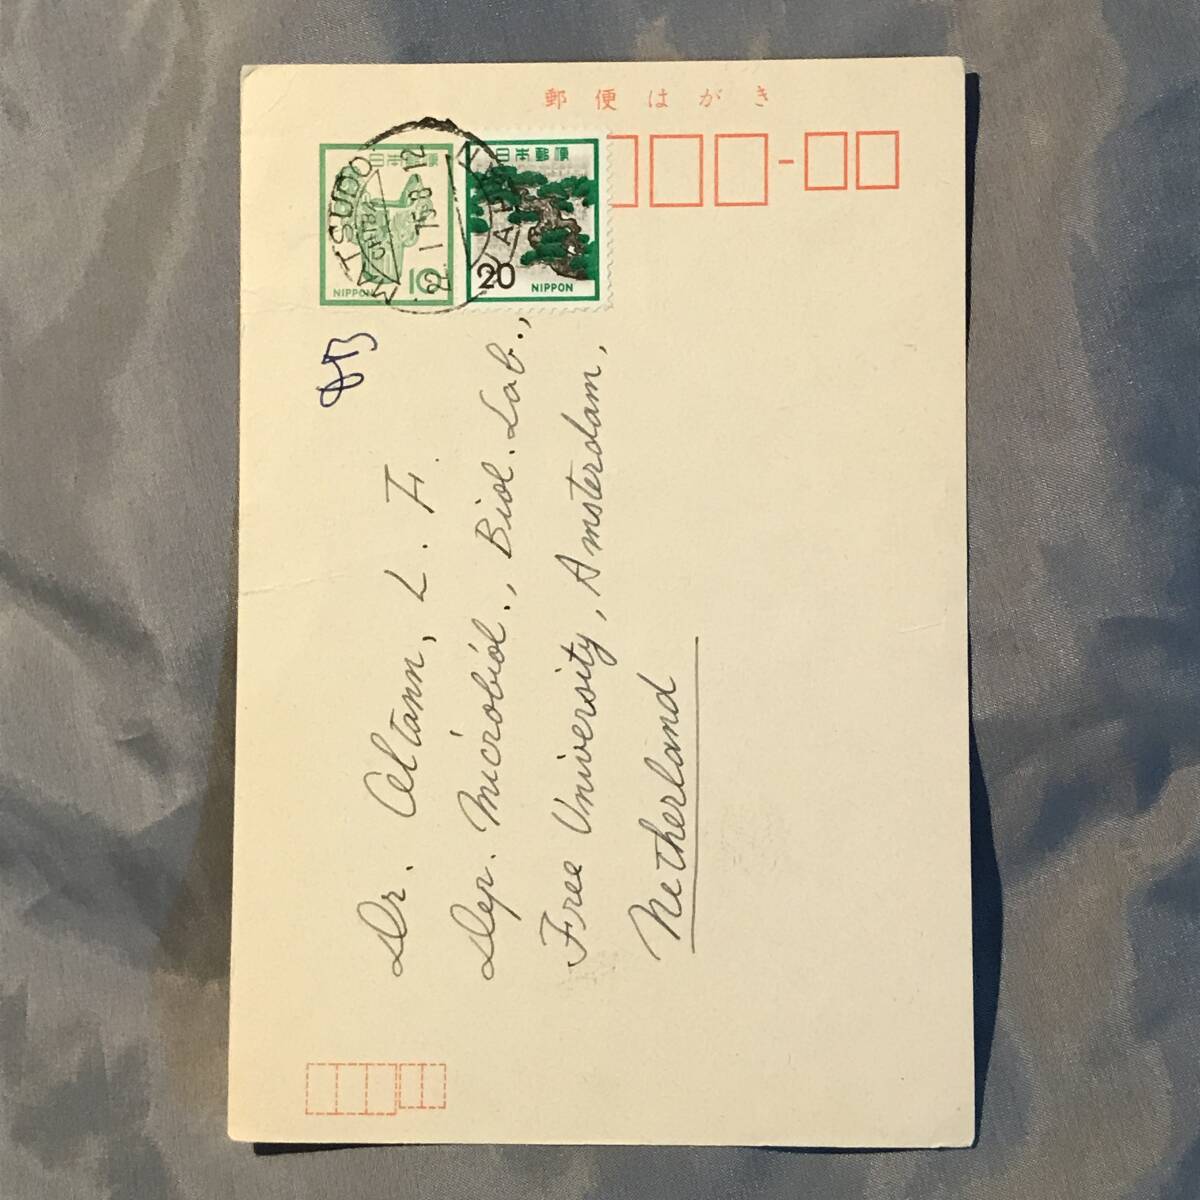 郵便はがき
日本郵便
10
NIPPON
日本郵便
20
NIPPON
MATSUDO
CHIBA
22. I 75.8-12
JAPAN
Dr. Altann, L. F.
Dep. Microbiol., Biol. Lab.,
Free University, Amsterdam,
Netherland